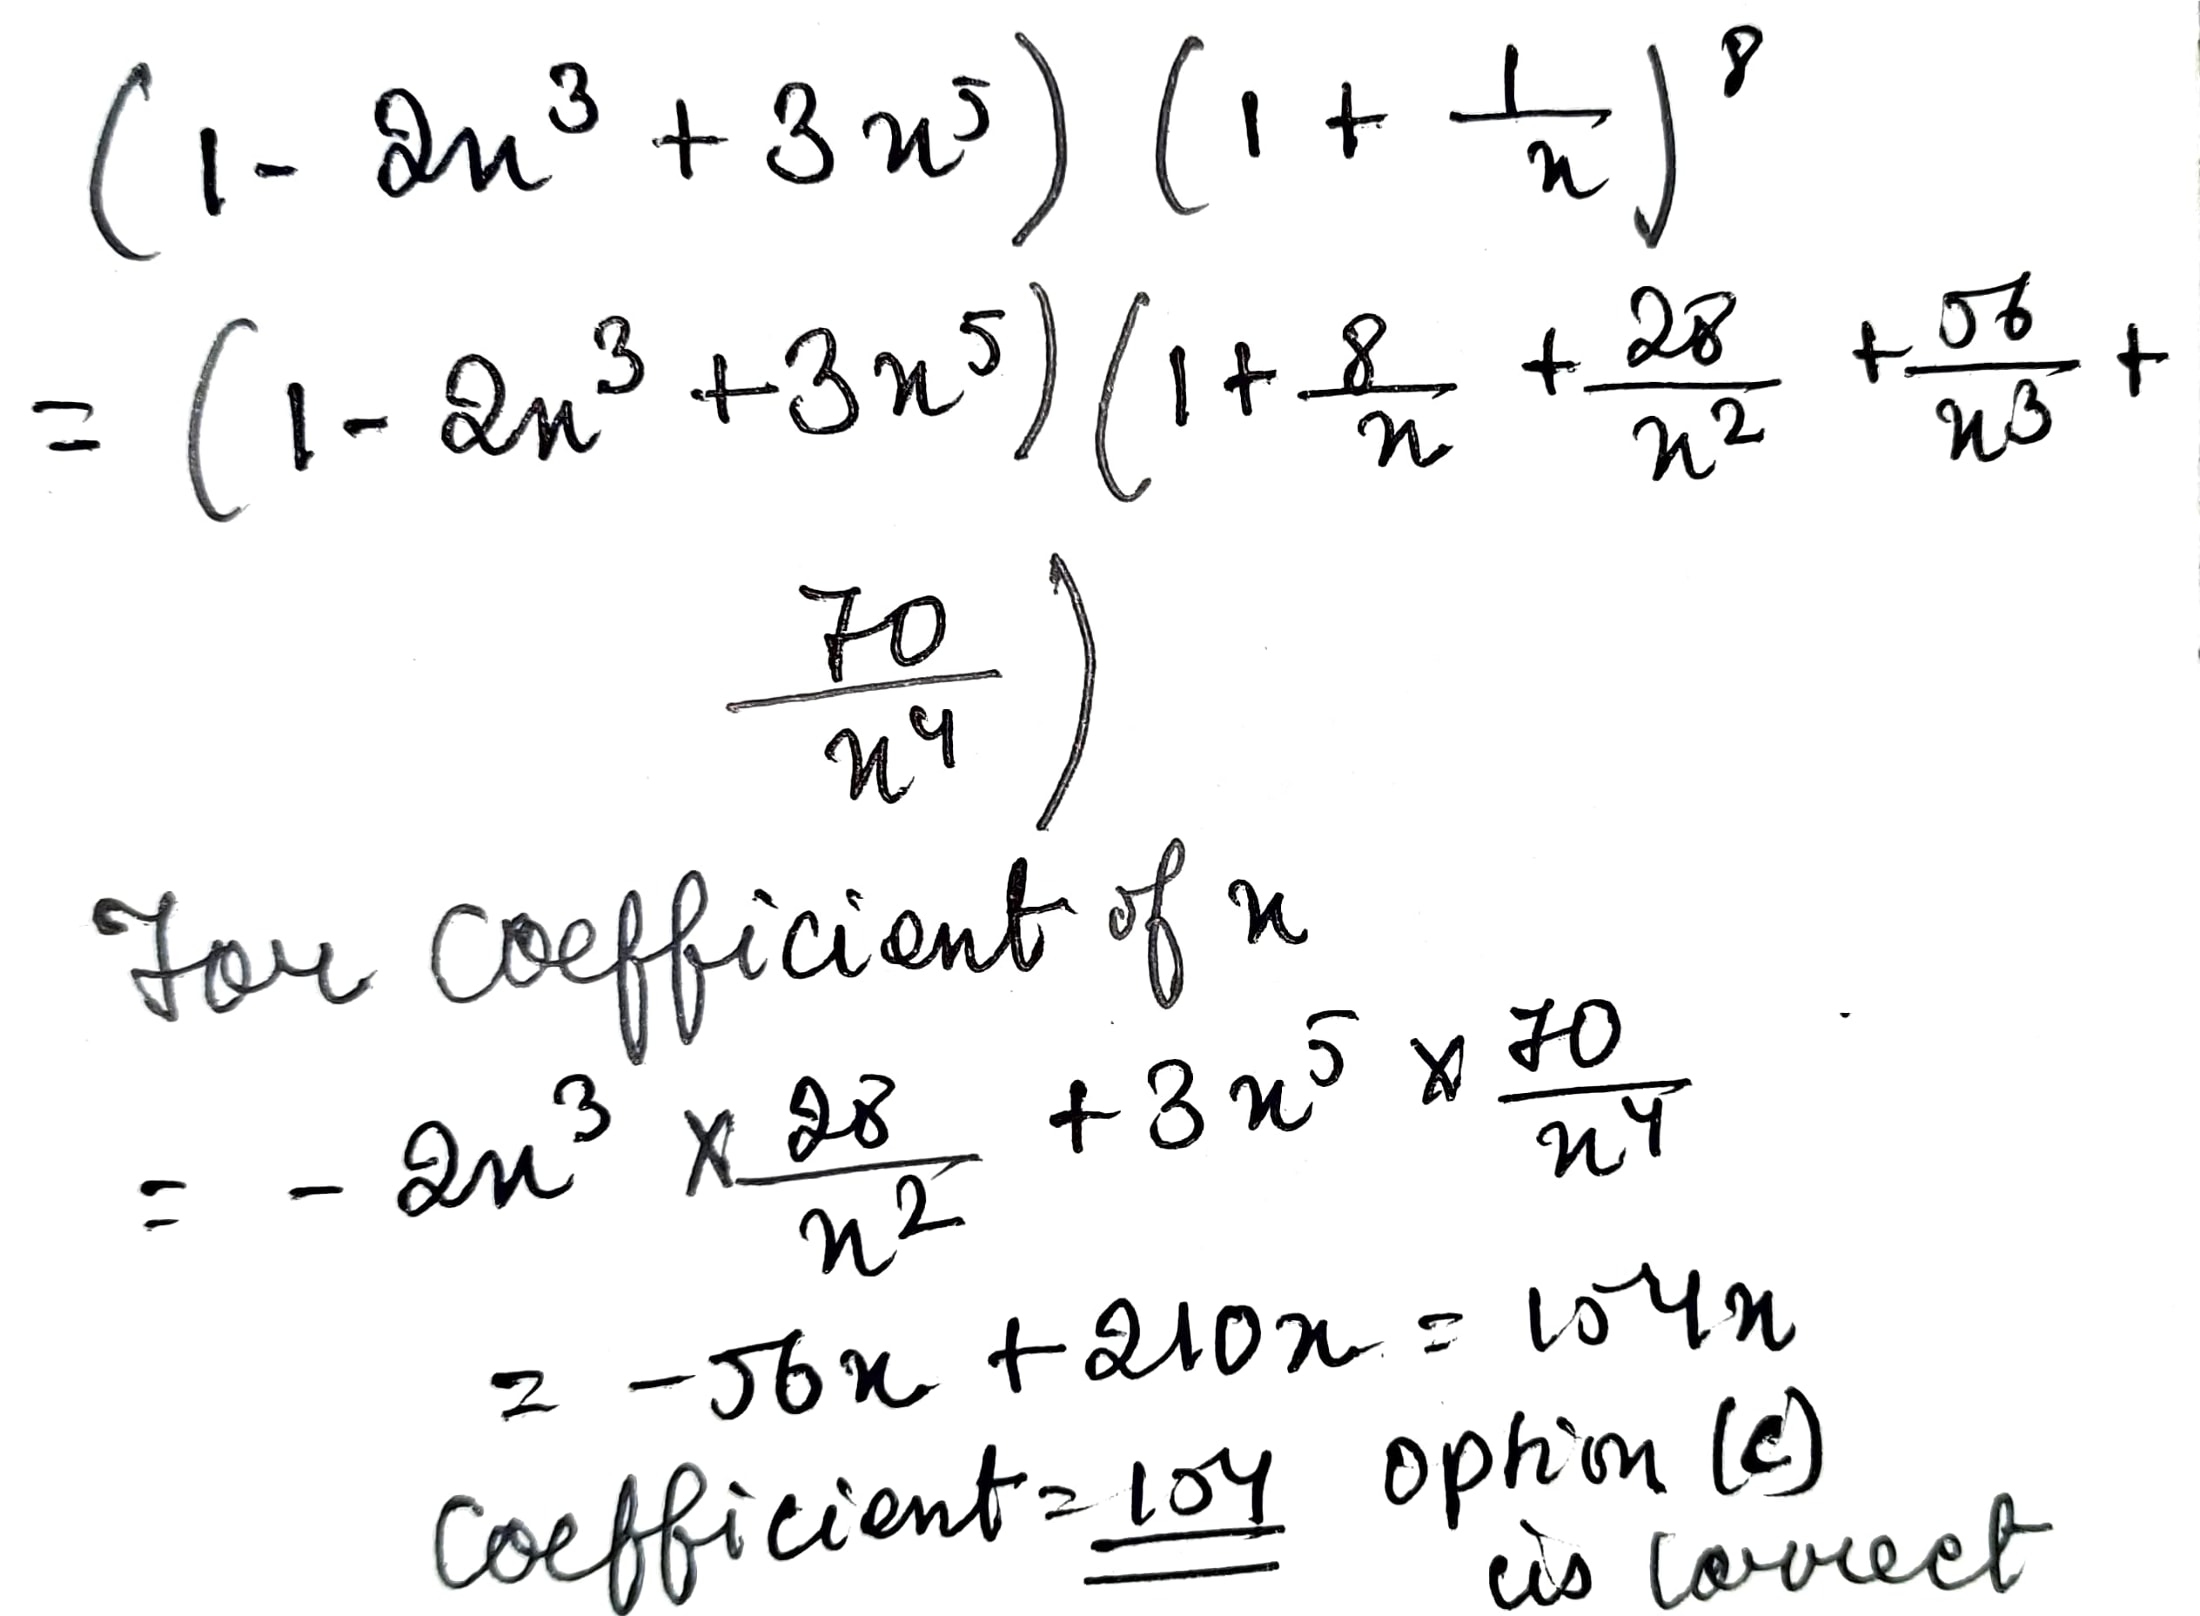 (1 - 2x³ + 3x⁵) (1 + 1/x)⁸
= (1 - 2x³ + 3x⁵) (1 + 8/x + 28/x² + 56/x³ +
70/x⁴)
For coefficient of x
= - 2x³ × 28/x² + 3x⁵ × 70/x⁴
= -56x + 210x = 154x
coefficient = 154 option (c)
is correct